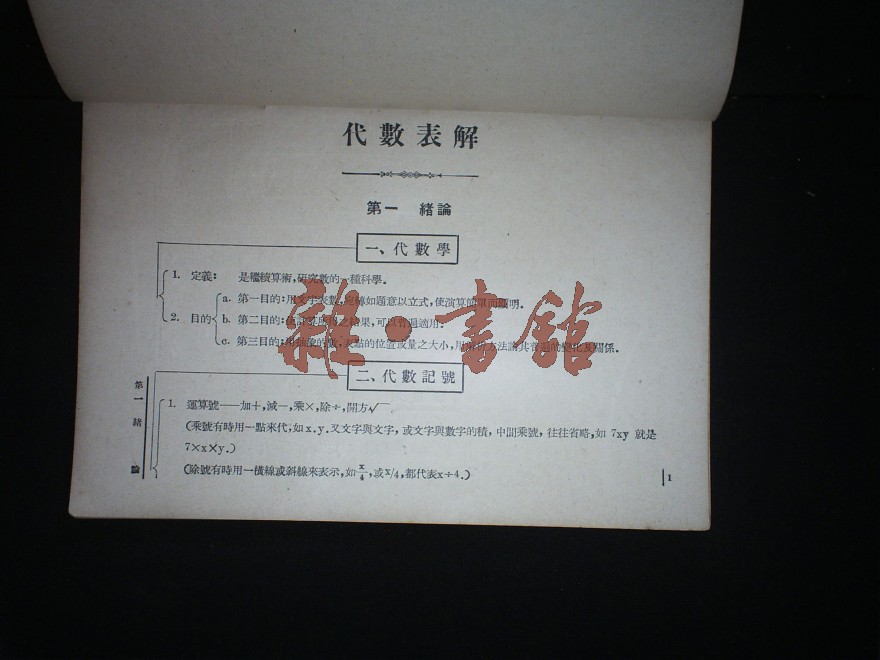 代數表解
第一 緒論
一、代數學
1. 定義: 是繼續算術,研究數的一種科學。
2. 目的
a. 第一目的:用文字表數,宛轉如題意以立式,使演算簡單而顯明。
b. 第二目的:使計算所得之結果,可以普遍適用。
c. 第三目的:用抽象的數,表點的位置或量之大小,用解析方法論其普遍的變化及關係。
二、代數記號
1. 運算號——加+,減—,乘×,除÷,開方√
(乘號有時用一點來代,如x.y.又文字與文字,或文字與數字的積,中間乘號,往往省略,如 7xy 就是
7×x×y.)
(除號有時用一橫線或斜線來表示,如x/4,或x/4,都代表x÷4.)
第一 緒論
1
雜·書館